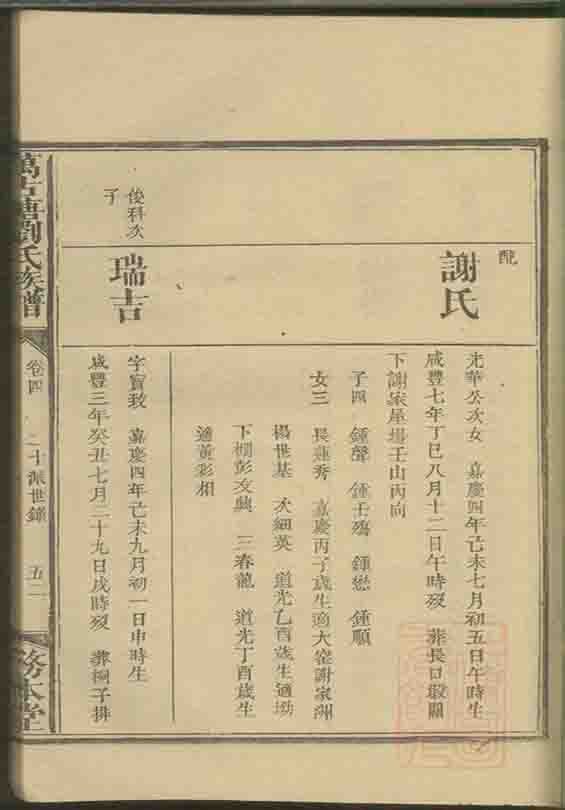 配
謝氏
光華公次女 嘉慶四年己未七月初五日午時生
咸豐七年丁巳八月十二日午時歿 葬長口
下謝家屋場壬山丙向
子四 鍾聲 鍾壬殤 鍾懋 鍾順
女三 長蓮秀 嘉慶丙子歲生適大窰謝家洲
楊世基 次細英 道光乙酉歲生適坳
下棚彭文典 三春龍 道光丁酉歲生
適黃彩相
俊科次
子
瑞吉
字寶致 嘉慶四年己未九月初一日申時生
咸豐三年癸丑七月二十九日戌時歿 葬 子排
萬古塘劉氏族譜
卷四 二十派世錄 五二
務本堂